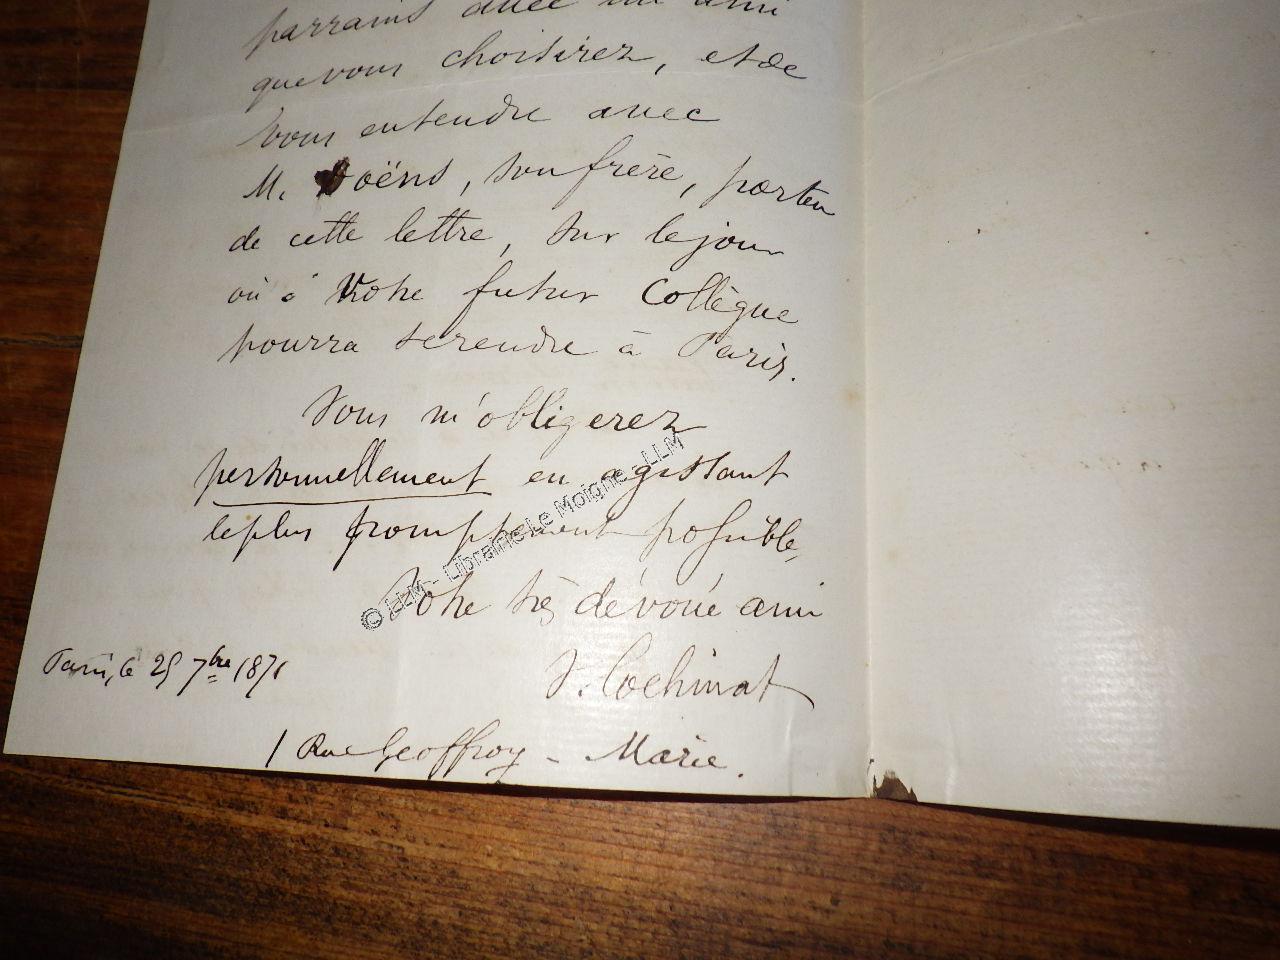 parrains avec un ami
que vous choisirez, et de
vous entendre avec
M. Goëns, son frère, porteu
de cette lettre, sur le jour
où votre futur Collègue
pourra se rendre à Paris.
Vous m'obligerez
personnellement en agissant
le plus promptement possible,
Votre très dévoué ami
V. Cochinat
Paris, le 25 7bre 1871
1 Rue Geoffroy - Marie.
© LLM - Librairie Le Moigne - LLM